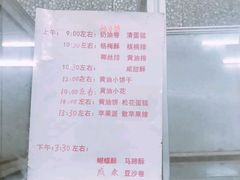 上午：9:00左右：奶油卷 清蛋糕
10:30左右：杨梅酥 核桃排
椰丝排 黄油排
10:30左右： 咸甜酥
12:00左右：黄油小饼干
10:00左右：黄油小花
16:00左右：黄油饼 松花蛋糕
13:30左右：苹果派 散苹果排
下午：3:30左右：
蝴蝶酥 马蹄酥
豆沙卷